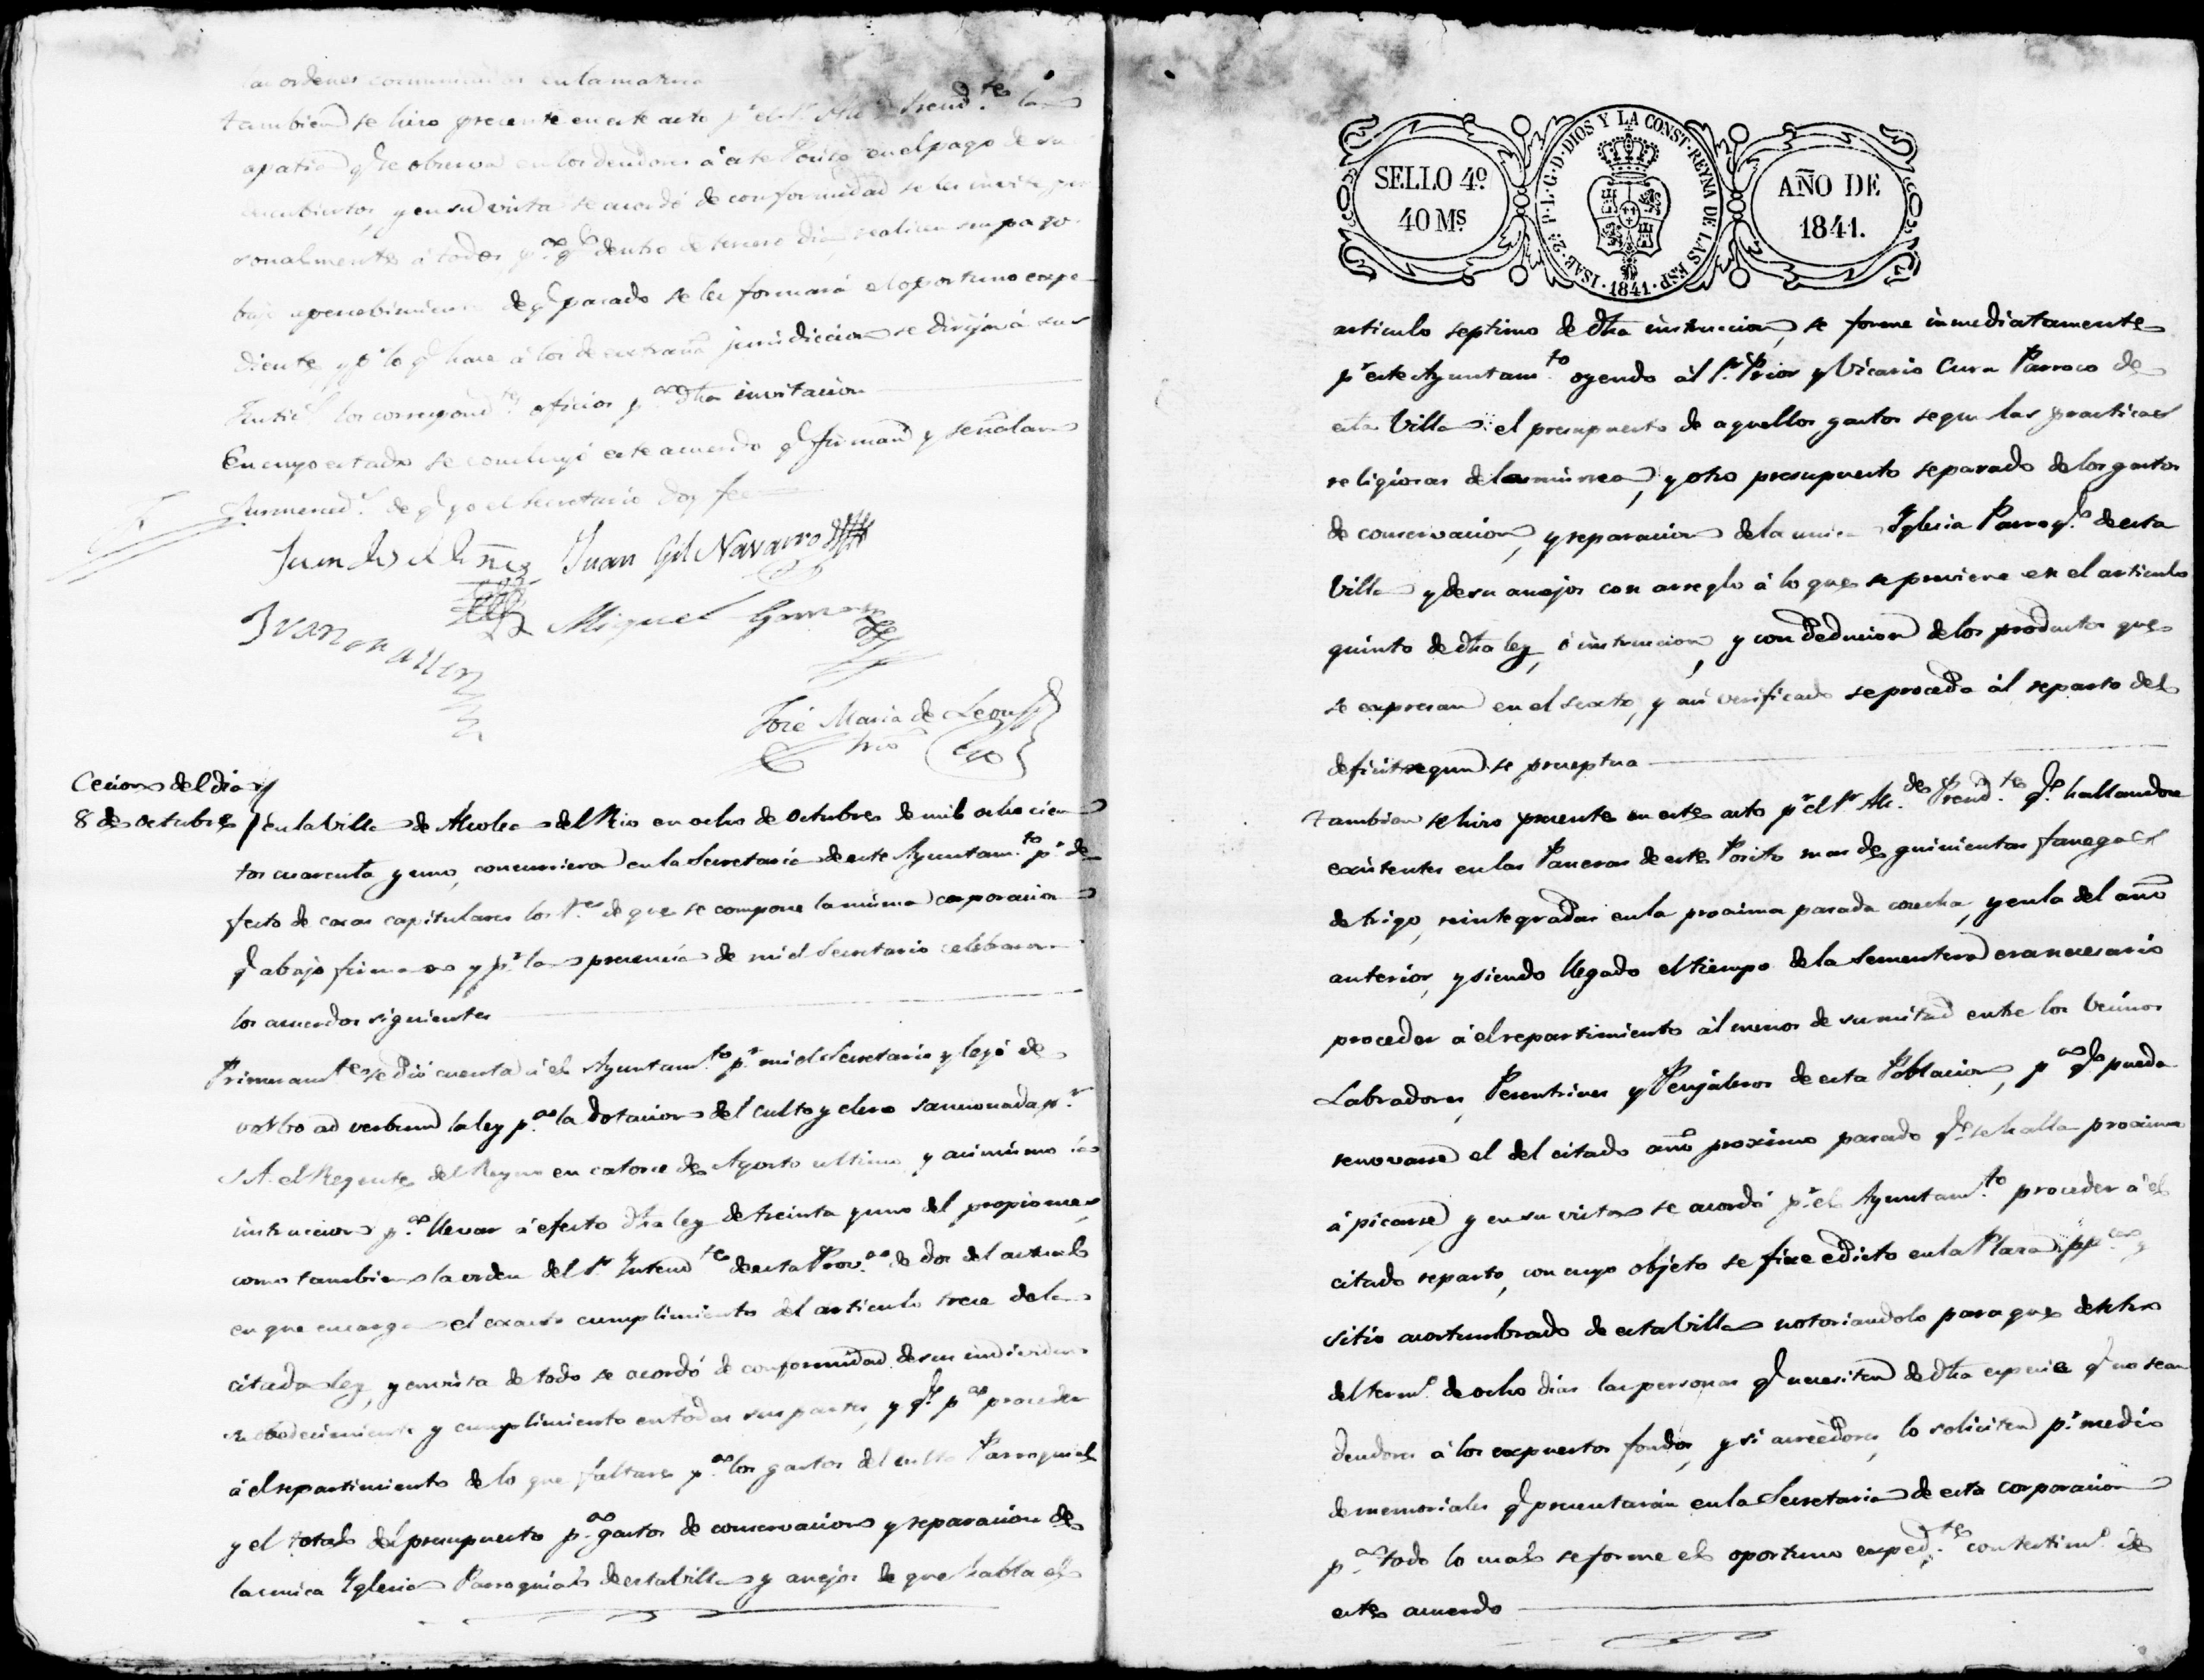 las ordenes comunicadas en la materia
tambien se hizo presente en este acto pr el Sr Alc Presid.te la
apatia q.e se observa en los deudores á este Posito en el pago de su
descubiertos, y en su vista se acordó de conformidad se les invite per
sonalmente á todos p.a q.e dentro de tercero dia realicen su pago
bajo apercebimiento de q.e pasado se les formará el oportuno espe
diente, y p.r lo q.e hace á los de extraña jurisdiccion se dirijan á sus
Justic.s los correspond.tes oficios p.a dha invitacion
En cuyo estado se concluyó este acuerdo q.e firman y señalan
sus merced.s de q.e yo el Secretario doy fee
Juan Gil Navarro
Miguel
José Maria de Leon
Srio
Cecion del dia
8 de octubre en la Villa de Alcolea del Rio en ocho de octubre de mil ochocien
tos cuarenta y uno, concurrieron en la Secretaria de este Ayuntam.to p.r de
fecto de casas capitulares los S.res de que se compone la misma corporacion
q.e abajo firmaran y p.r la presencia de mi el Secretario celebraron
los acuerdos siguientes
Primeram.te se dió cuenta á el Ayuntam.to p.r mi el Secretario y leyó de
verbo ad verbum la ley p.a la dotacion del culto y clero sancionada p.r
S. A. el Regente del Reyno en catorce de Agosto ultimo, y asimismo la
instruccion p.a llevar á efecto dha ley de treinta y uno del propio mes
como tambien la orden del Sr Intend.te de esta Prov.a de dos del actual
en que encarga el exacto cumplimiento del articulo trece de la
citada ley, y en vista de todo se acordó de conformidad de sus individuos
su obedecimiento y cumplimiento en todas sus partes, y q.e p.a proceder
á el repartimiento de lo que faltare p.a los gastos del culto Parroquial
y el total del presupuesto p.a gastos de conservacion y reparacion de
la unica Yglesia Parroquial de esta villa y anejos de que habla el
SELLO 4º
40 Ms.
ISAB. 2ª P. L. G. D. DIOS Y LA CONST. REYNA DE LAS ESP. 1841.
AÑO DE
1841.
articulo septimo de dha instruccion, se forme inmediatamente
p.r este Ayuntam.to oyendo ál S.r Prior y Vicario Cura Parroco de
esta Villa el presupuesto de aquellos gastos segun las practicas
religiosas de la misma, y otro presupuesto separado de los gastos
de conservacion, y reparacion de la unica Yglesia Parroq.l de esta
Villa y de su anejos con arreglo á lo que se previene en el articulo
quinto de dha ley, é instruccion, y con deducion de los productos que
se expresan en el sexto, y asi verificado se proceda ál reparto del
deficit segun se preceptua
tambien se hizo presente en este acto p.r el Sr Alc.de Presid.te q.e hallandose
existentes en las Paneras de este Posito mas de quinientas fanegas
de trigo, reintegradas en la proxima pasada cosecha, y en la del año
anterior, y siendo llegado el tiempo de la Sementera era necesario
proceder á el repartimiento ál menos de su mitad entre los Vecinos
Labradores, Peentrines y Pegujaleros de esta Poblacion, p.a q.e pueda
renovarse el del citado año proximo pasado q.e se halla proximo
á picarse, y en su vista se acordó p.r el Ayuntam.to proceder á el
citado reparto, con cuyo objeto se fixe edicto en la Plaza pp.ca y
sitio acostumbrado de esta Villa notoriandolo para que dentro
del term.o de ocho dias las personas q.e necesiten de dha especie q.e no sean
deudores á los expuestos fondos, y si acreedores, lo soliciten p.r medio
de memoriales q.e presentarán en la Secretaria de esta corporacion
p.a todo lo cual se forme el oportuno exped.te con testim.o de
este acuerdo